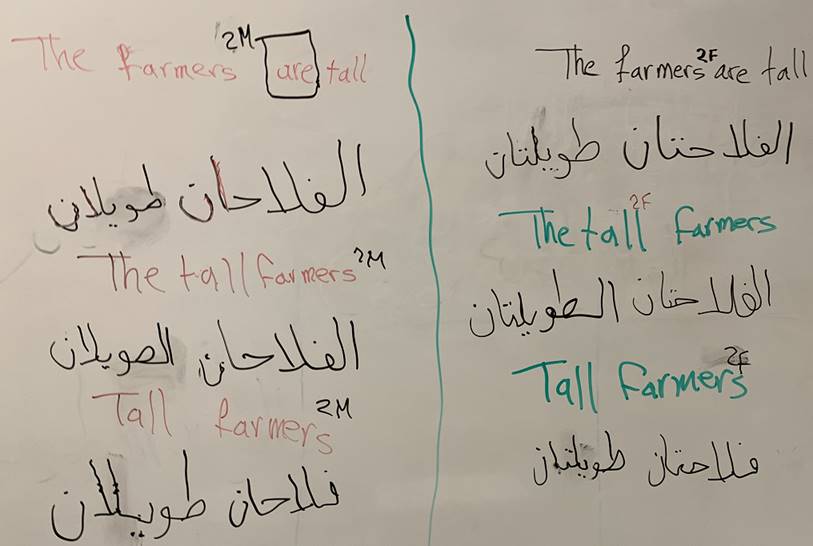 The farmers 2M are tall
الفلاحان طويلان
The tall farmers 2M
الفلاحان الصويلان
Tall farmers 2M
فلاحان طويلان
The farmers 2F are tall
الفلاحتان طويلتان
The tall 2F farmers
الفلاحتان الطويلتان
Tall farmers 2F
فلاحتان طويلتان